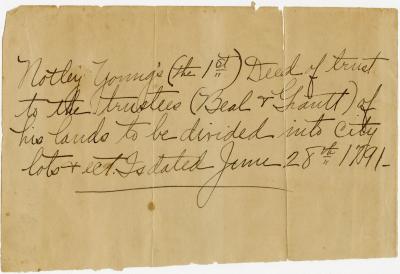 Notley Young's (the 1st) Deed of trust
to the trustees (Beal & Gantt) of
his lands to be divided into city
lots & ect. Is dated June 28th 1791-